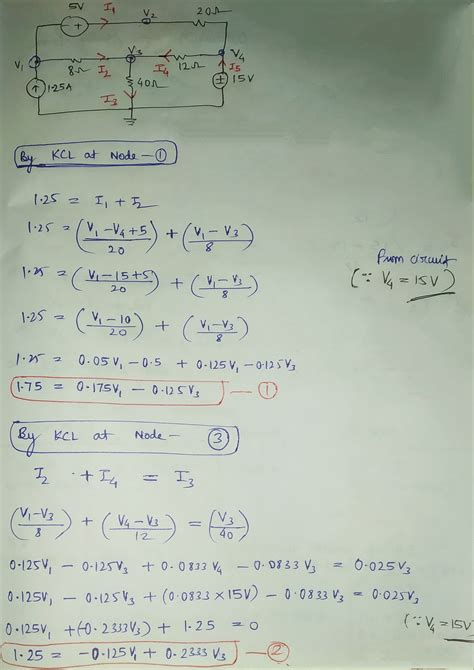 5V
I₁
V₂
20Ω
V₁
8Ω
I₂
V₃
I₄
12Ω
V₄
I₅
1.25A
40Ω
I₃
15V
By KCL at Node-①
1.25 = I₁ + I₂
1.25 = ((V₁ - V₄ + 5)/20) + ((V₁ - V₃)/8)
From circuit
1.25 = ((V₁ - 15 + 5)/20) + ((V₁ - V₃)/8)
(∵ V₄ = 15V)
1.25 = ((V₁ - 10)/20) + ((V₁ - V₃)/8)
1.25 = 0.05V₁ - 0.5 + 0.125V₁ - 0.125V₃
1.75 = 0.175V₁ - 0.125V₃ — ①
By KCL at Node- ③
I₂ + I₄ = I₃
((V₁ - V₃)/8) + ((V₄ - V₃)/12) = (V₃/40)
0.125V₁ - 0.125V₃ + 0.0833V₄ - 0.0833V₃ = 0.025V₃
0.125V₁ - 0.125V₃ + (0.0833 × 15V) - 0.0833V₃ = 0.025V₃
0.125V₁ + (-0.2333V₃) + 1.25 = 0 (∵ V₄ = 15V
1.25 = -0.125V₁ + 0.2333V₃ — ②